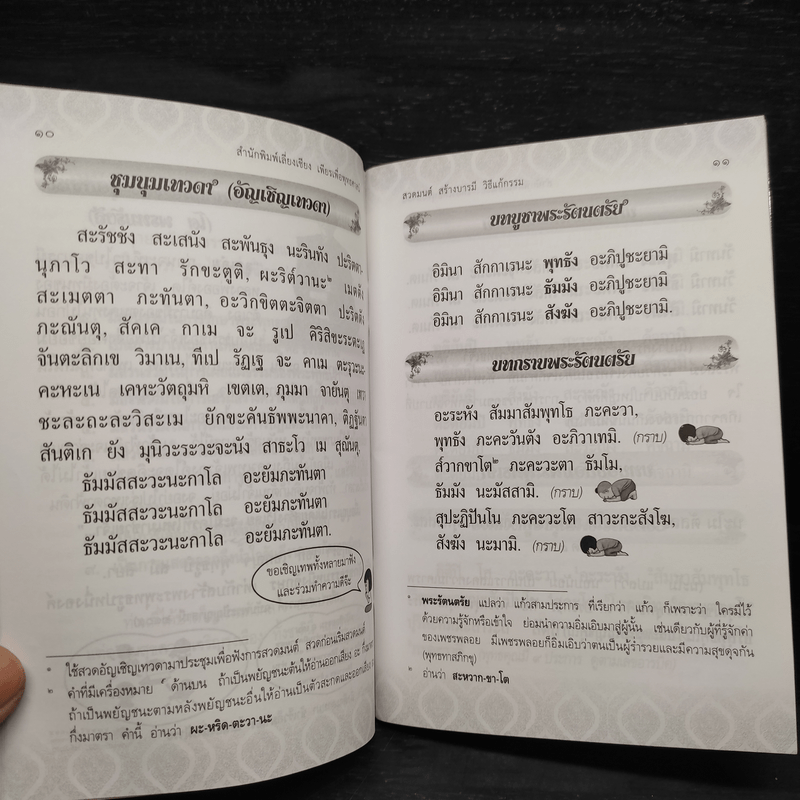 ๑๐
สำนักพิมพ์เลี่ยงเชียง เพียรเพื่อพุทธศาสน์
ชุมนุมเทวดา๑ (อัญเชิญเทวดา)
สะรัชชัง สะเสนัง สะพันธุง นะรินทัง ปะริตตา-
นุภาโว สะทา รักขะตูติ, ผะริต๎วานะ๒ เมตตัง
สะเมตตา ภะทันตา, อะวิกขิตตะจิตตา ปะริตตัง
ภะณันตุ, สัคเค กาเม จะ รูเป คิริสิขะระตะเฏ
จันตะลิกเข วิมาเน, ทีเป รัฏเฐ จะ คาเม ตะรุวะนะ-
คะหะเน เคหะวัตถุมหิ เขตเต, ภุมมา จายันตุ เทวา
ชะละถะละวิสะเม ยักขะคันธัพพะนาคา, ติฏฐันตา
สันติเก ยัง มุนิวะระวะจะนัง สาธะโว เม สุณันตุ,
ธัมมัสสะวะนะกาโล อะยัมภะทันตา
ธัมมัสสะวะนะกาโล อะยัมภะทันตา
ธัมมัสสะวะนะกาโล อะยัมภะทันตา.
ขอเชิญเทพทั้งหลายมาฟัง
และร่วมทำความดีจ๊ะ
๑ ใช้สวดอัญเชิญเทวดามาประชุมเพื่อฟังการสวดมนต์ สวดก่อนเริ่มสวดมนต์
๒ คำที่มีเครื่องหมาย ๎ ด้านบน ถ้าเป็นพยัญชนะต้นให้อ่านออกเสียง อะ
ถ้าเป็นพยัญชนะตามหลังพยัญชนะอื่นให้อ่านเป็นตัวสะกดและออกเสียง
กึ่งมาตรา คำนี้ อ่านว่า ผะ-หริด-ตะวา-นะ
๑๑
สวดมนต์ สร้างบารมี วิธีแก้กรรม
บทบูชาพระรัตนตรัย๑
อิมินา สักกาเรนะ พุทธัง อะภิปูชะยามิ
อิมินา สักกาเรนะ ธัมมัง อะภิปูชะยามิ
อิมินา สักกาเรนะ สังฆัง อะภิปูชะยามิ.
บทกราบพระรัตนตรัย
อะระหัง สัมมาสัมพุทโธ ภะคะวา,
พุทธัง ภะคะวันตัง อะภิวาเทมิ. (กราบ)
ส๎วากขาโต๒ ภะคะวะตา ธัมโม,
ธัมมัง นะมัสสามิ. (กราบ)
สุปะฏิปันโน ภะคะวะโต สาวะกะสังโฆ,
สังฆัง นะมามิ. (กราบ)
๑ พระรัตนตรัย แปลว่า แก้วสามประการ ที่เรียกว่า แก้ว ก็เพราะว่า ใครมีไว้
ด้วยความรู้จักหรือเข้าใจ ย่อมนำความอิ่มเอิบมาสู่ผู้นั้น เช่นเดียวกับผู้ที่รู้จักค่า
ของเพชรพลอย มีเพชรพลอยก็อิ่มเอิบว่าตนเป็นผู้ร่ำรวยและมีความสุขดุจกัน
(พุทธทาสภิกขุ)
๒ อ่านว่า สะหวาก-ขา-โต